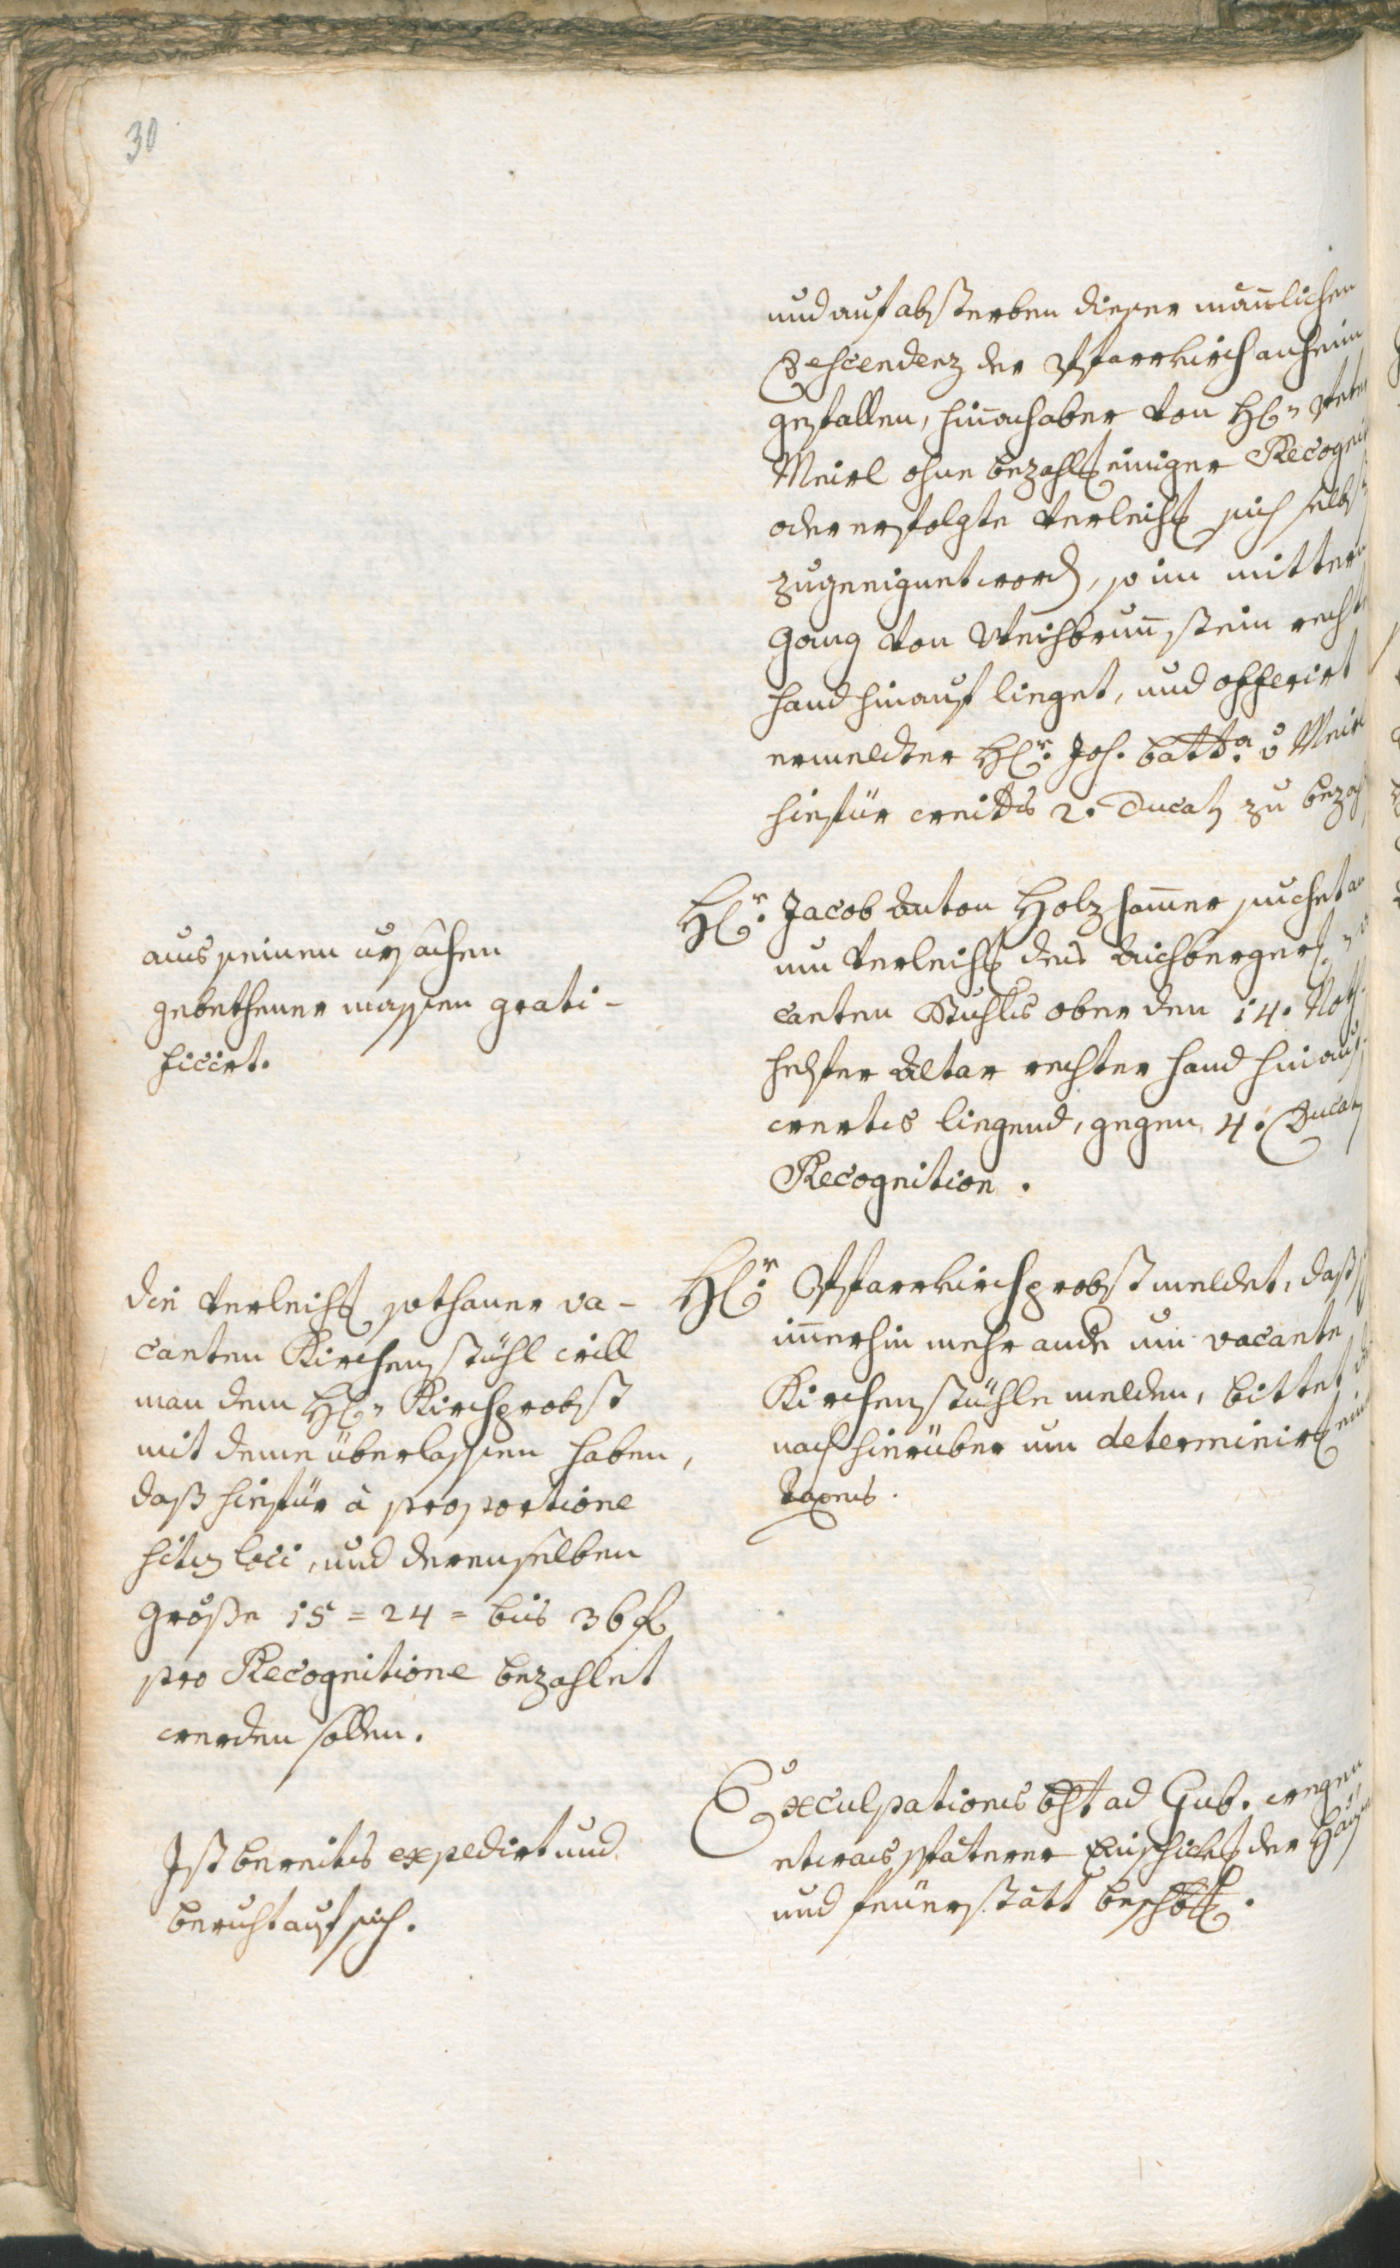 30
und auf absterben dieser mañlichen
Descendenz der Pfarrkirch anheim
gefallen, hiñach aber von H: Peter
Meirl ohne bezahlt einiger Recogni
oder erfolgte verleih sich selbst
zugeeignet word, so im mittern
Gang von Weichbruñstein rechte
hand hinauf lieget, und offerirt
ermeldter H:r Joh. Batt:a v Meirl
hiefür creitds 2. Ducat zu bezah
aus seinen ursachen
gebethener massen grati-
ficirt.
H:r Jacob Anton Holzham̃er suchet an
um verleih des Aichberger
canten Stuhls ober den 14. Noth
helfer Altar rechter hand hinauf
werts liegend, gegen 4. Ducat
Recognition.
die verleih sothaner va-
canten Kirchenstühl will
man dem H: Kirchprobst
mit deme überlassen haben,
daß hiefür à proportione
situs loci, und derenselben
Größe 15 = 24 = bis 36 f
pro Recognitione bezahlet
werden sollen.
H:r Pfarrkirchprobst meldet, daß
im̃erhin mehr ande um vacante
Kirchenstühle melden, bittet
nach hierüber um determinir ein
Taxens.
Ist bereits expedirt und
beruht auf sich.
Exculpations bht ad Gub. wegen
etwas späterer Einschickh der Häuser
und feüerstätt beschbt.